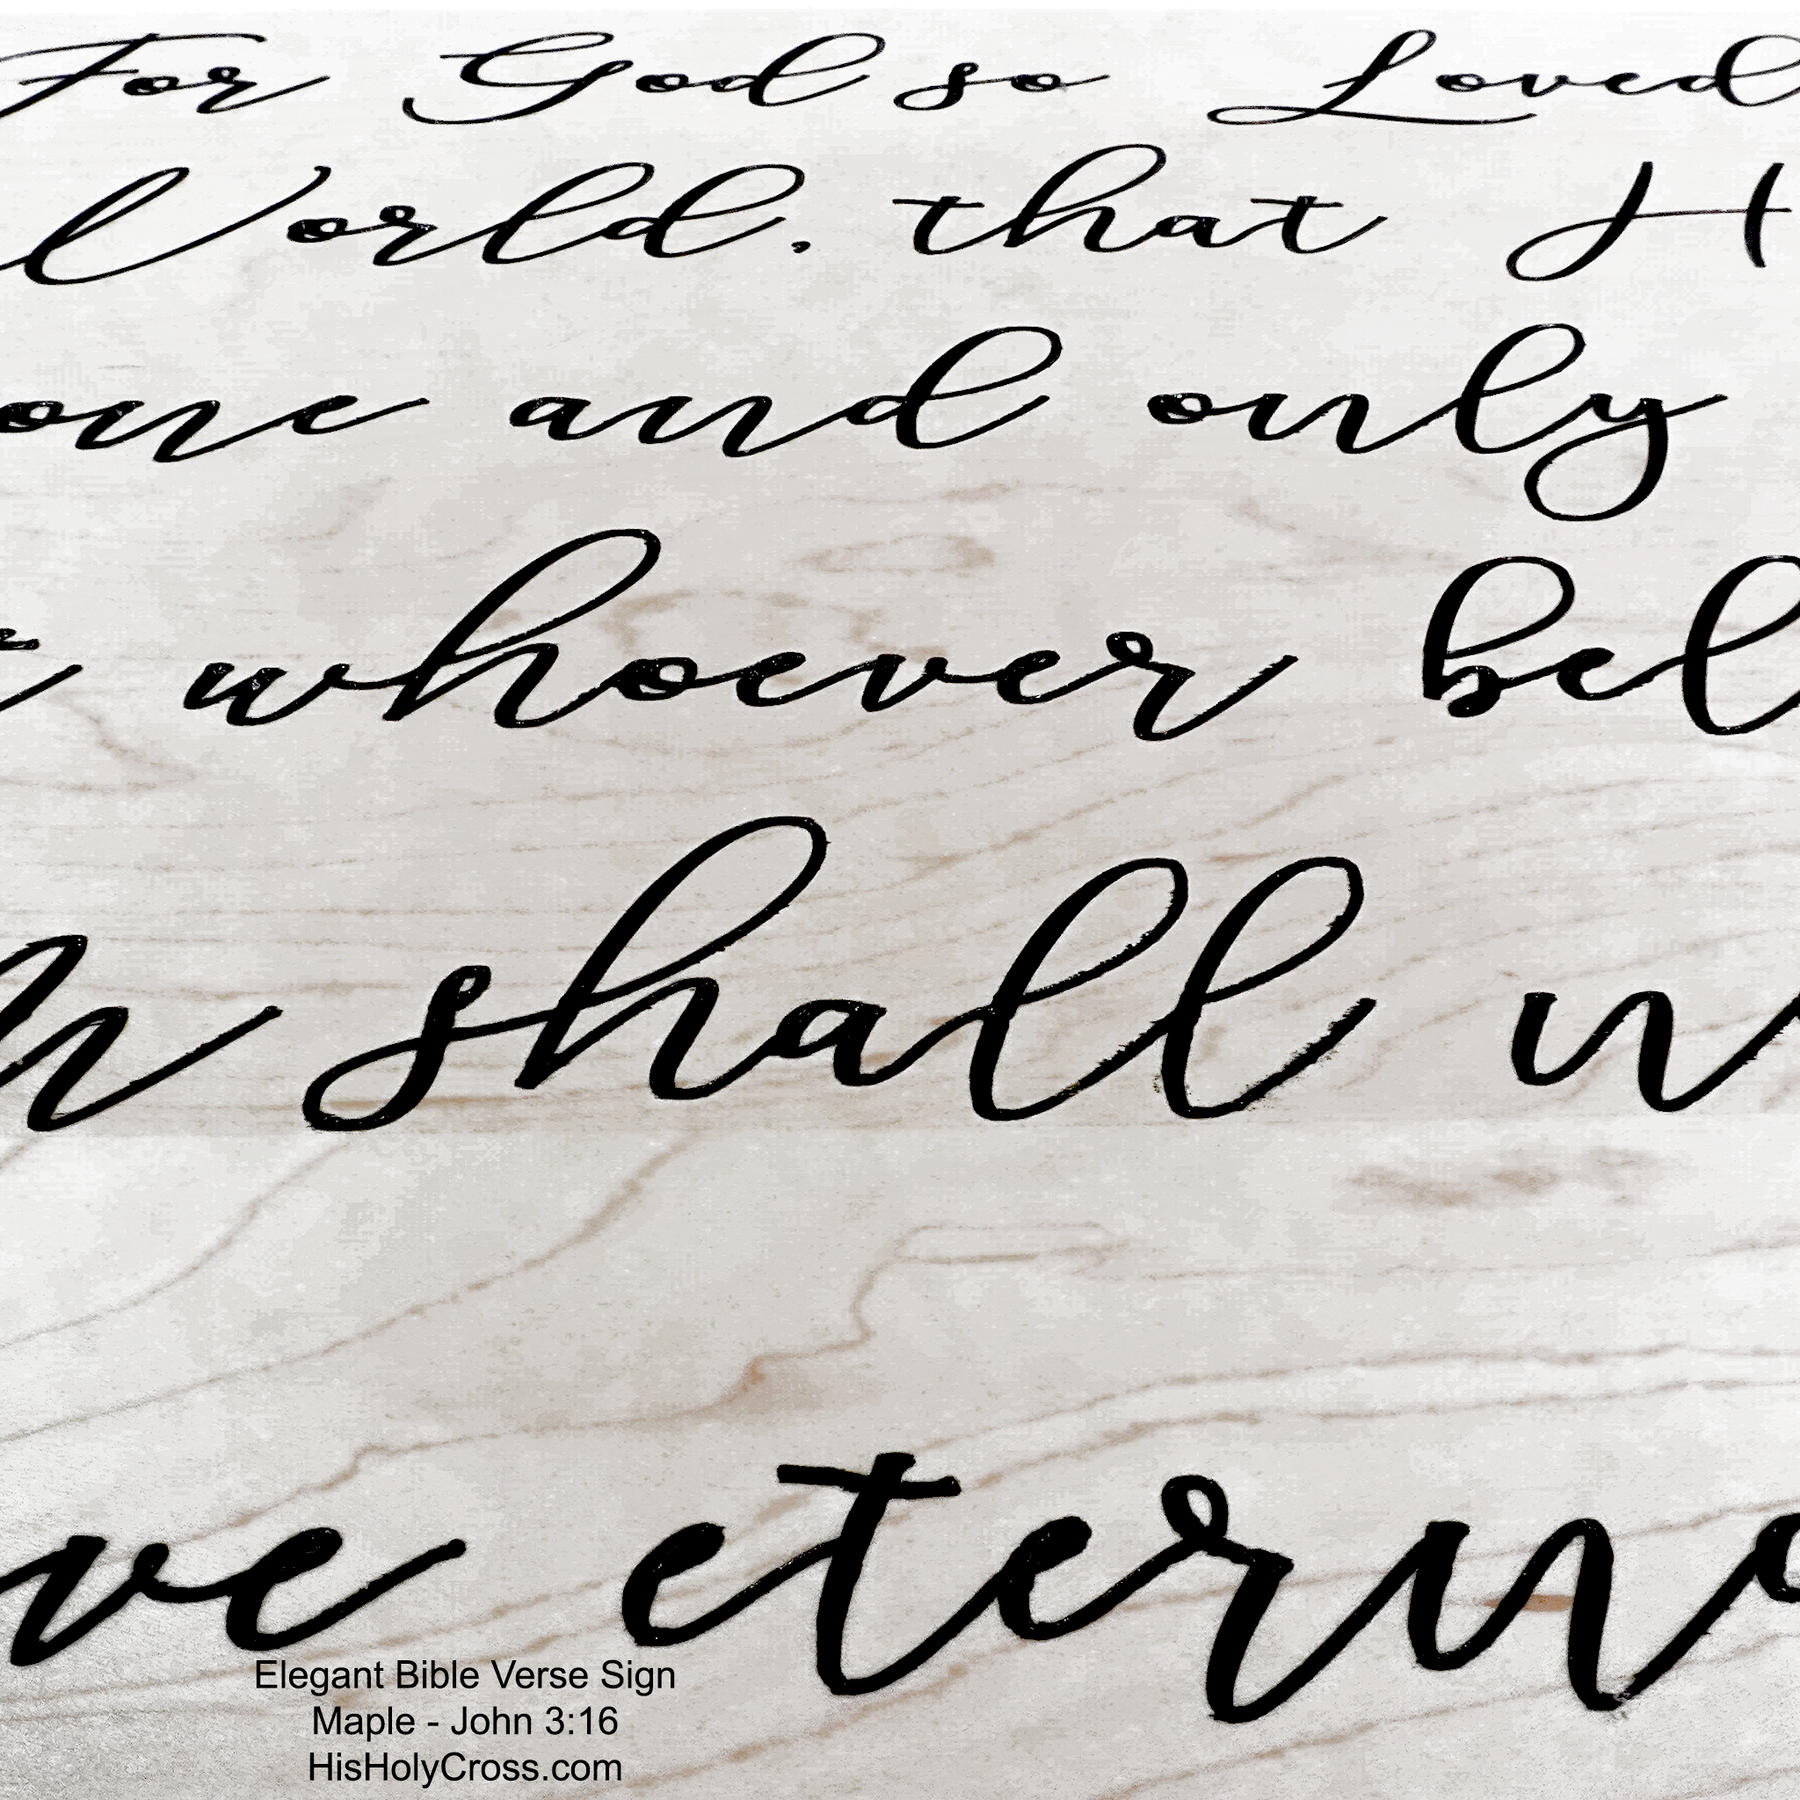 For God so Loved
World, that H
one and only
t whoever bel
m shall n
ve eterna
Elegant Bible Verse Sign
Maple - John 3:16
HisHolyCross.com